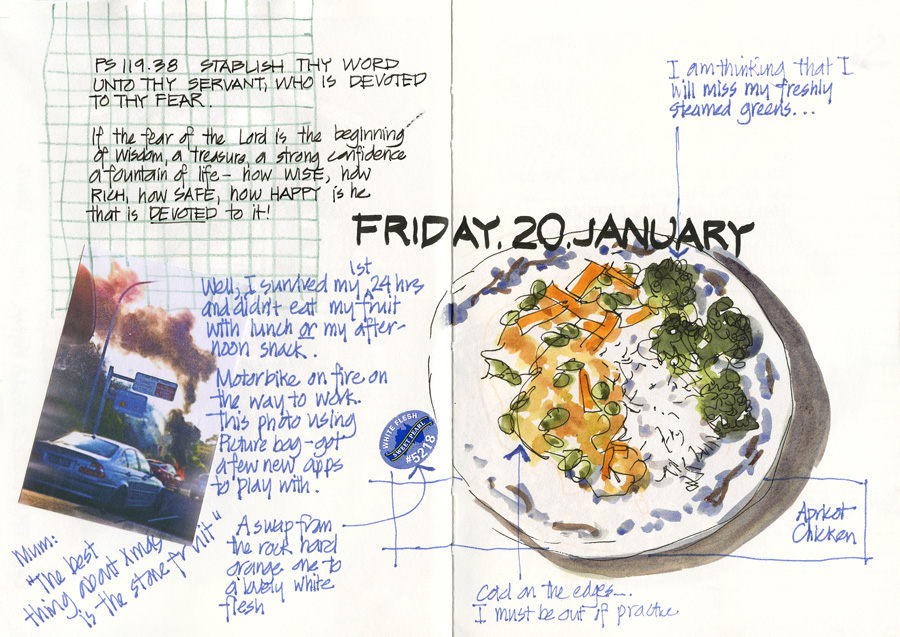 PS 119.38 STABLISH THY WORD
UNTO THY SERVANT, WHO IS DEVOTED
TO THY FEAR.
If the fear of the Lord is the beginning
of wisdom, a treasure, a strong confidence
a fountain of life – how WISE, how
RICH, how SAFE, how HAPPY is he
that is DEVOTED to it!
I am thinking that I
will miss my freshly
steamed greens...
FRIDAY. 20. JANUARY
Well, I survived my 1st 24 hrs
and didn't eat my fruit
with lunch or my after-
noon snack.
Motorbike on fire on
the way to work.
This photo using
Picture bag – got
a few new apps
to play with.
WHITE FLESH
SWEET PEARL
#5218
A swap from
the rock hard
orange one to
a lovely white
flesh
Mum:
"The best
thing about Xmas
is the stone fruit"
Apricot
Chicken
Cold on the edges...
I must be out of practice